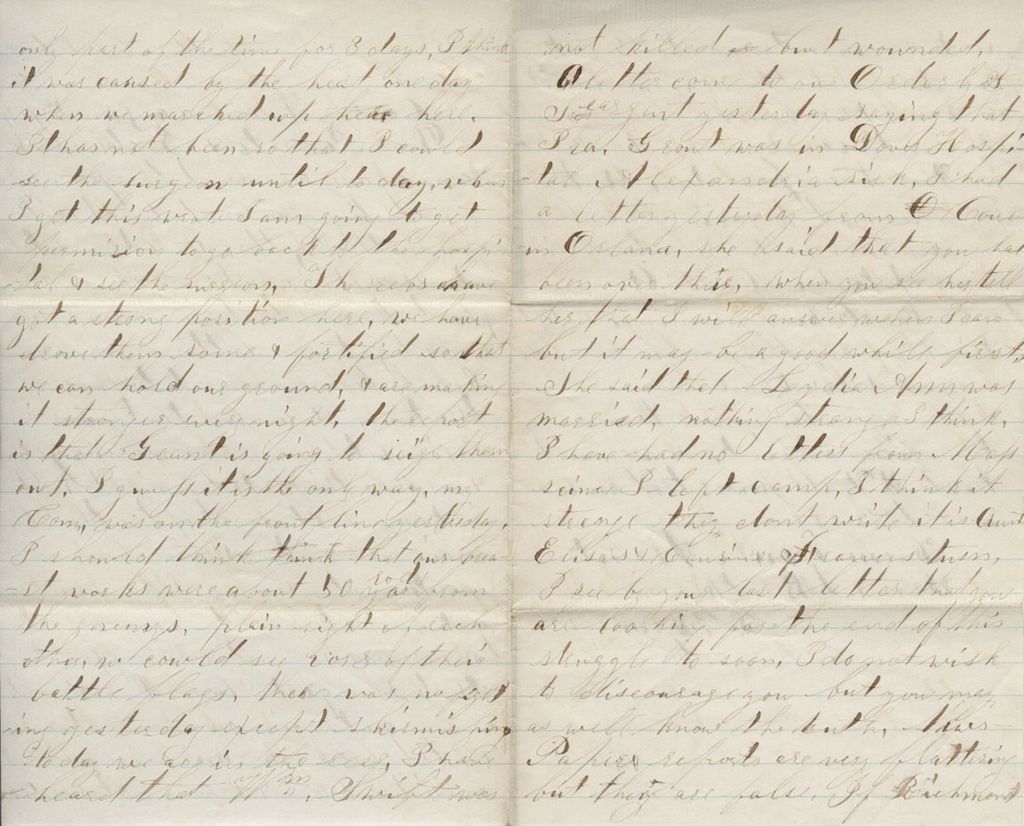 only part of the time for 3 days, I think
it was caused by the heat one day
when we marched up here here.
It has not been so that I could
see the surgeon until to day, when
I get this wrote I am going to get
permision to go back to the hospi
tal & see the surgeon, The rebs have
got a strong position here, we have
drove them some & fortified so that
we can hold our ground, & are making
it stronger every night, the report
is that Grant is going to seige them
out, I guess it is the only way, my
Com, was on the front line yesterday,
I should think think that our brea-
-st works were about 50 rod from
the enemys, plain sight of each
other, we could see rows of their
battle flags, there was no fight
ing yesterday except skirmishing
to day we are in the rear, I have
heard that Wm. Swift was
not killed but wounded,
A letter come to an Orderly
Seargent yesterday saying that
Ira, Grout was in Hospi
-tal Alexandria sick, I had
a letter yesterday from
in Orland, she said that you had
been over their, when you see her tell
her that I will answer when I can
but it may be a good while first,
She said that Lydia Ann was
married, nothing strange I think,
I have had no letters from Mass
seince I left camp, I think it
strange they dont write it is Aunt
Elisas & Cousin Frances turn,
I see by your last letter that you
are looking for the end of this
struggle to soon, I do not wish
to discourage you but you may
as well know the truth, News-
Papers reports are very flattering
but they are false, If Richmond